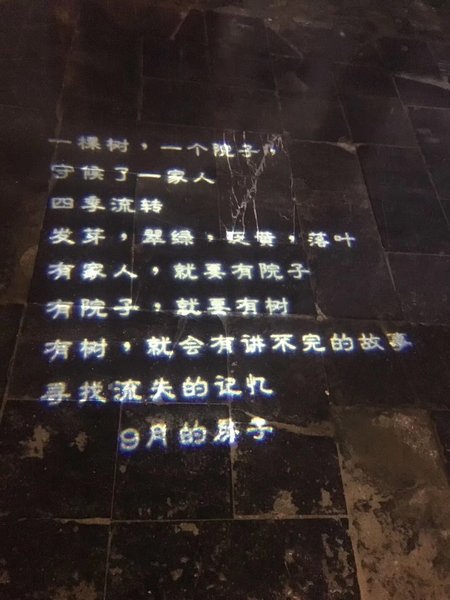 一棵树，一个院子，
守候了一家人
四季流转
发芽，翠绿，泛黄，落叶
有家人，就要有院子
有院子，就要有树
有树，就会有讲不完的故事
寻找流失的记忆
9月的